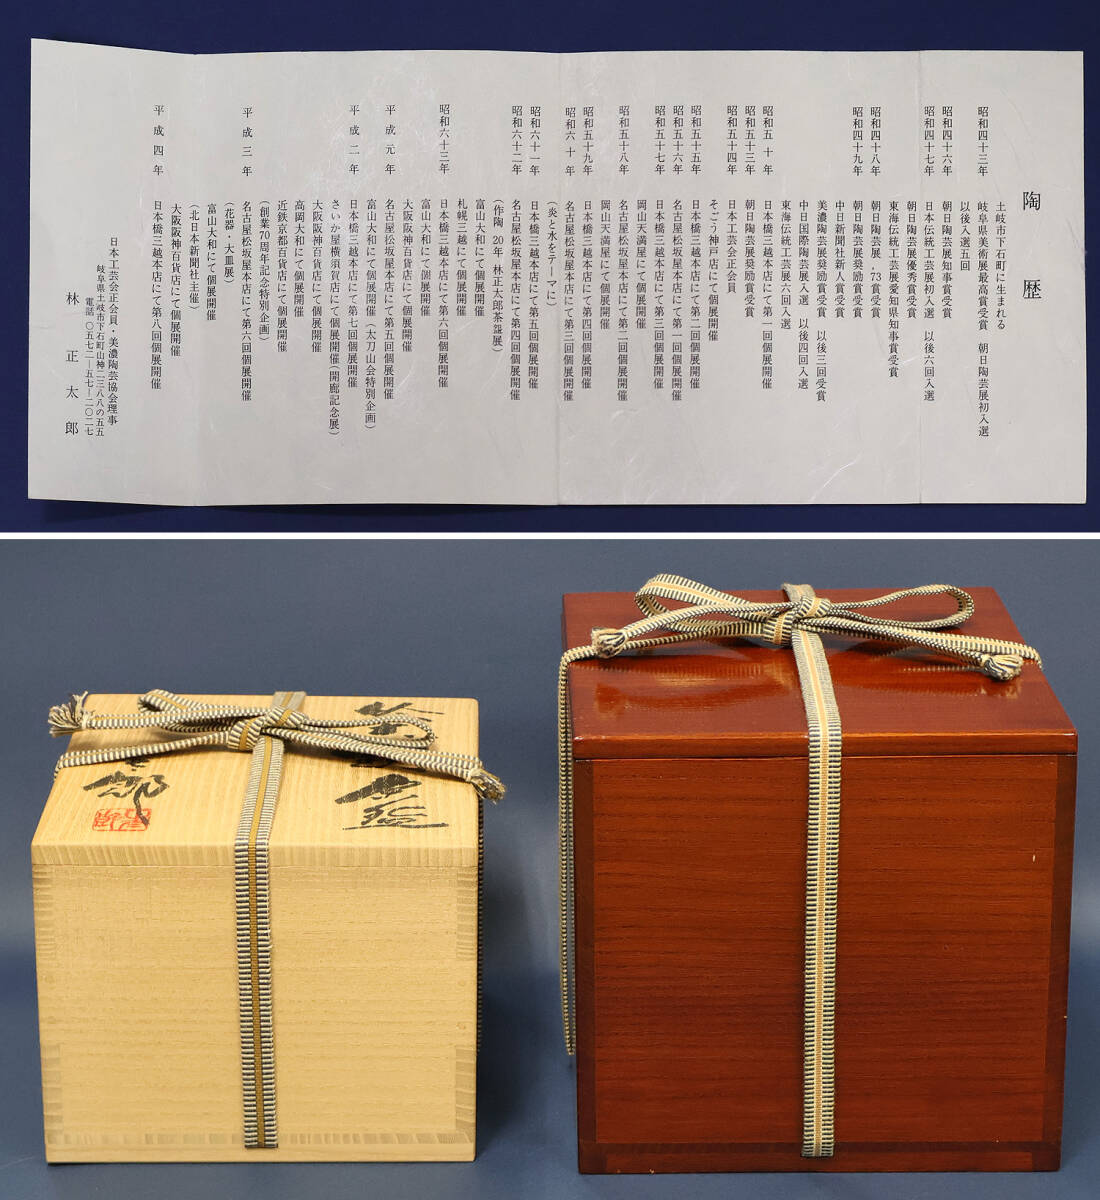 陶歴
土岐市下石町に生まれる
昭和四十三年 岐阜県美術展最高賞受賞 朝日陶芸展初入選
以後入選五回
昭和四十六年 朝日陶芸展知事賞受賞
昭和四十七年 日本伝統工芸展初入選 以後六回入選
朝日陶芸展優秀賞受賞
東海伝統工芸展愛知県知事賞受賞
昭和四十八年 朝日陶芸展,73賞受賞
昭和四十九年 朝日陶芸展奨励賞受賞
中日新聞社新人賞受賞
美濃陶芸展奨励賞受賞 以後三回受賞
中日国際陶芸展入選 以後四回入選
東海伝統工芸展六回入選
昭和五十年 日本橋三越本店にて第一回個展開催
昭和五十三年 朝日陶芸展奨励賞受賞
昭和五十四年 日本工芸会正会員
そごう神戸店にて個展開催
昭和五十五年 日本橋三越本店にて第二回個展開催
昭和五十六年 名古屋松坂屋本店にて第一回個展開催
昭和五十七年 日本橋三越本店にて第三回個展開催
岡山天満屋にて個展開催
昭和五十八年 名古屋松坂屋本店にて第二回個展開催
岡山天満屋にて個展開催
昭和五十九年 日本橋三越本店にて第四回個展開催
昭和六十年 名古屋松坂屋本店にて第三回個展開催
(炎と水をテーマに)
昭和六十一年 日本橋三越本店にて第五回個展開催
昭和六十二年 名古屋松坂屋本店にて第四回個展開催
(作陶20年 林正太郎茶盌展)
富山大和にて個展開催
札幌三越にて個展開催
昭和六十三年 日本橋三越本店にて第六回個展開催
富山大和にて個展開催
大阪阪神百貨店にて個展開催
平成元年 名古屋松坂屋本店にて第五回個展開催
富山大和にて個展開催(太刀山会特別企画)
平成二年 日本橋三越本店にて第七回個展開催
さいか屋横須賀店にて個展開催(開廊記念展)
大阪阪神百貨店にて個展開催
高岡大和にて個展開催
近鉄京都百貨店にて個展開催
(創業70周年記念特別企画)
平成三年 名古屋松坂屋本店にて第六回個展開催
(花器・大皿展)
富山大和にて個展開催
(北日本新聞社主催)
大阪阪神百貨店にて個展開催
平成四年 日本橋三越本店にて第八回個展開催
日本工芸会正会員・美濃陶芸協会理事
岐阜県土岐市下石町山神二三八八の五五
電話 〇五七二―五七―二〇二七
林正太郎
茶盌
郎